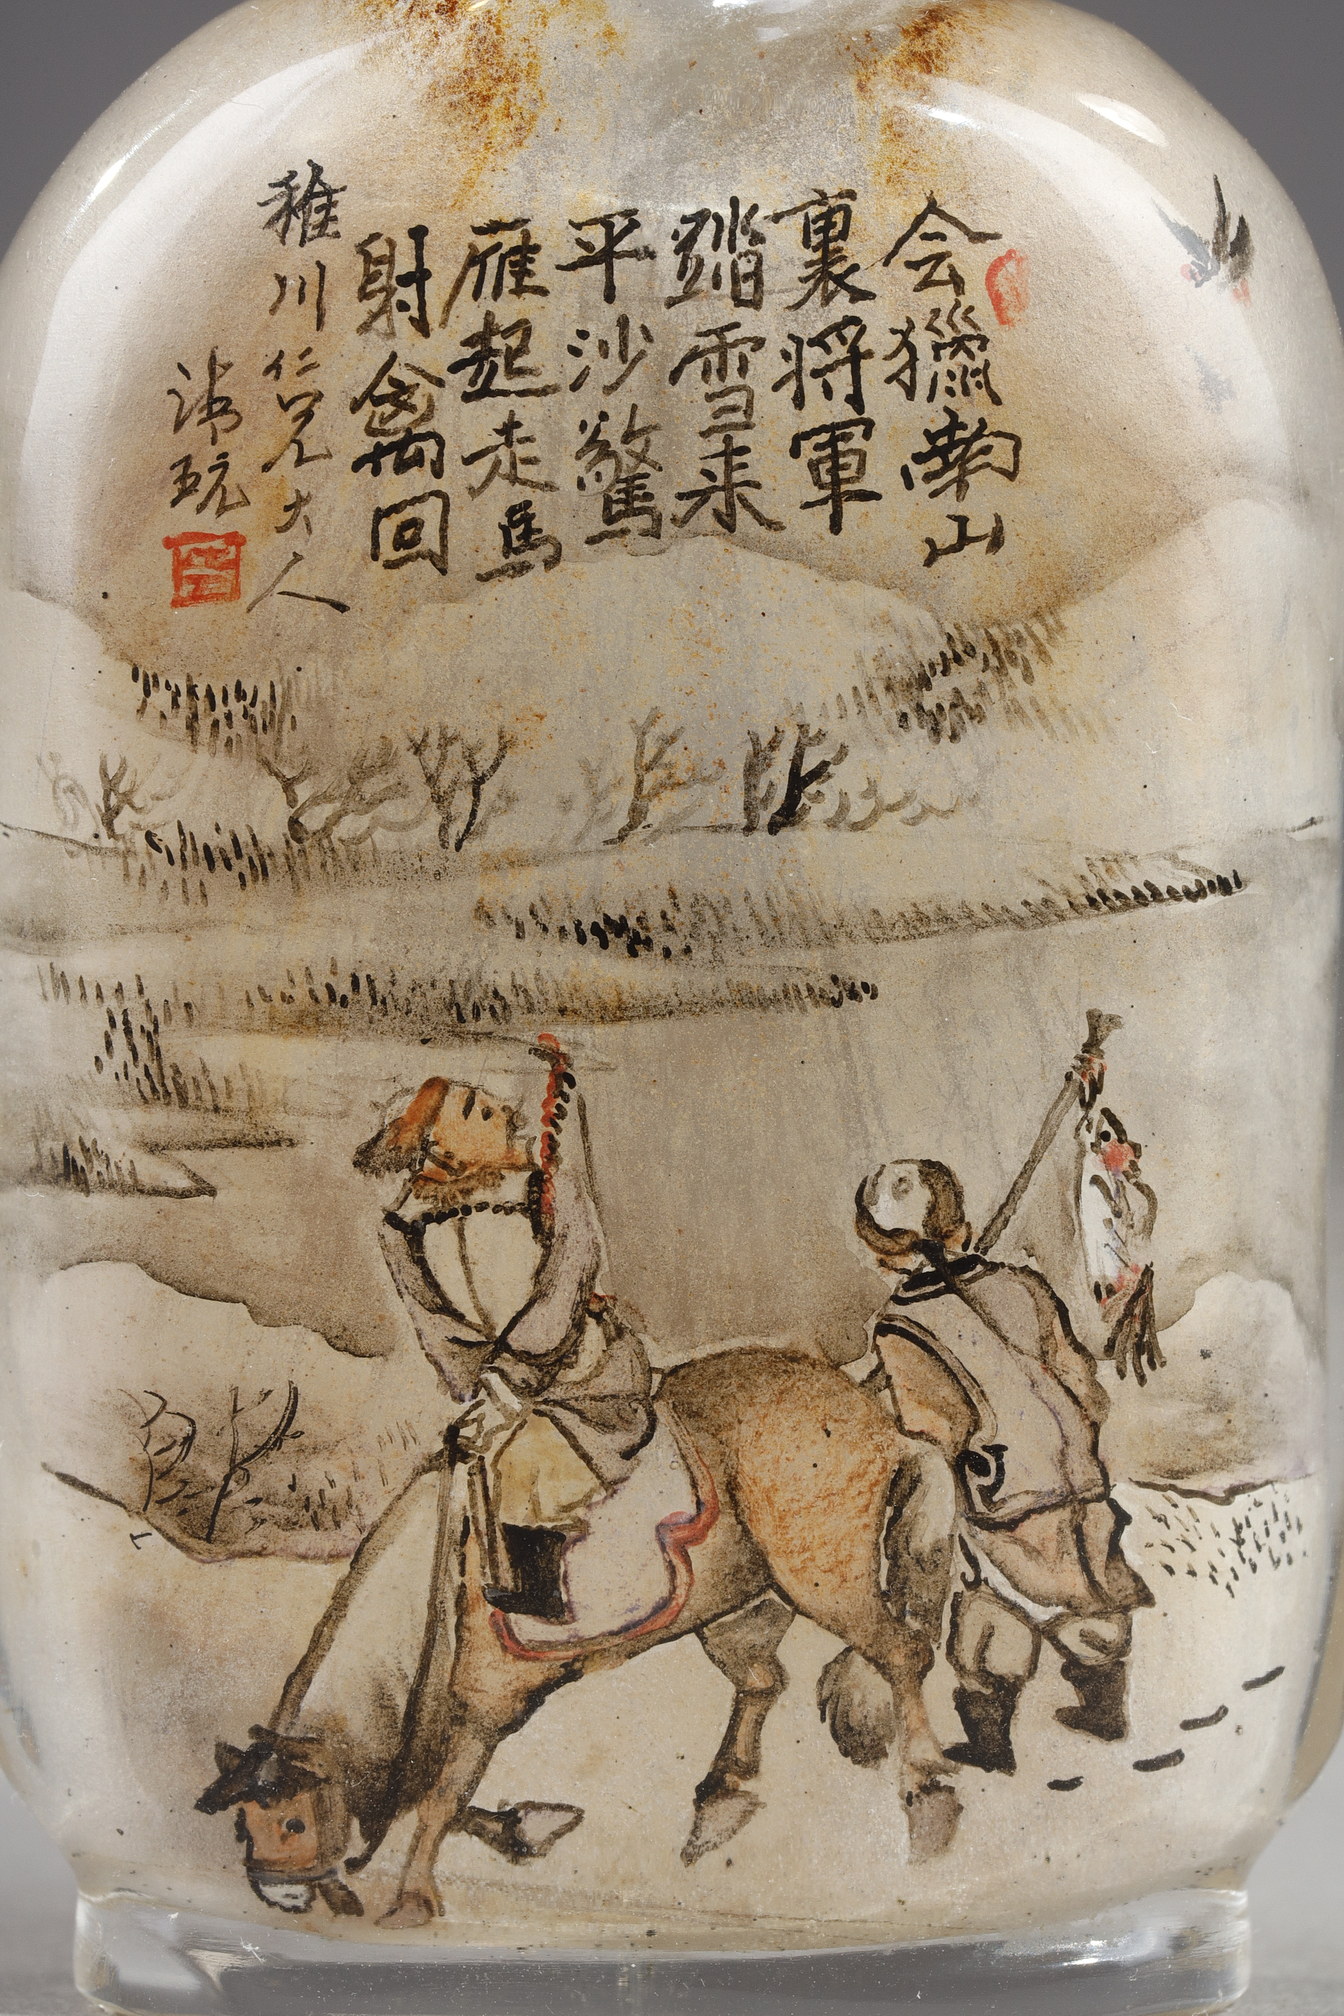 会獵南山
裏將軍
踏雪来
平沙驚
雁起走馬
射禽回
稚川仁兄大人
清玩